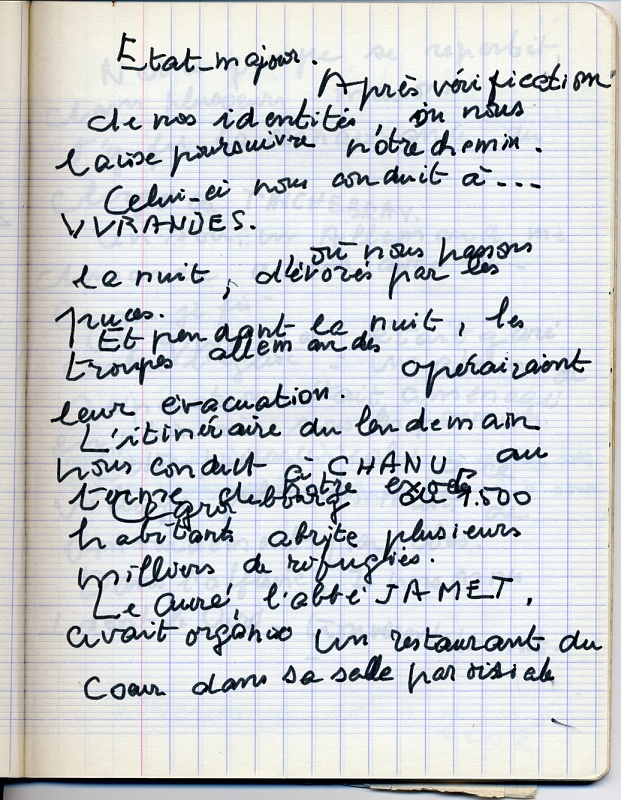 Etat-major.
Après vérification
de nos identités, on nous
laisse poursuivre notre chemin.
Celui-ci nous conduit à ...
YVRANDES.
où nous passons
la nuit, dévorés par les
puces.
Et pendant la nuit, les
troupes allemandes opéraient
leur évacuation.
L'itinéraire du lendemain
nous conduit à CHANU, au
terme de notre exode.
Ce gros bourg de 1.500
habitants abrite plusieurs
milliers de réfugiés.
Le curé, l'abbé JAMET,
avait organisé un restaurant du
Coeur dans sa salle paroissiale